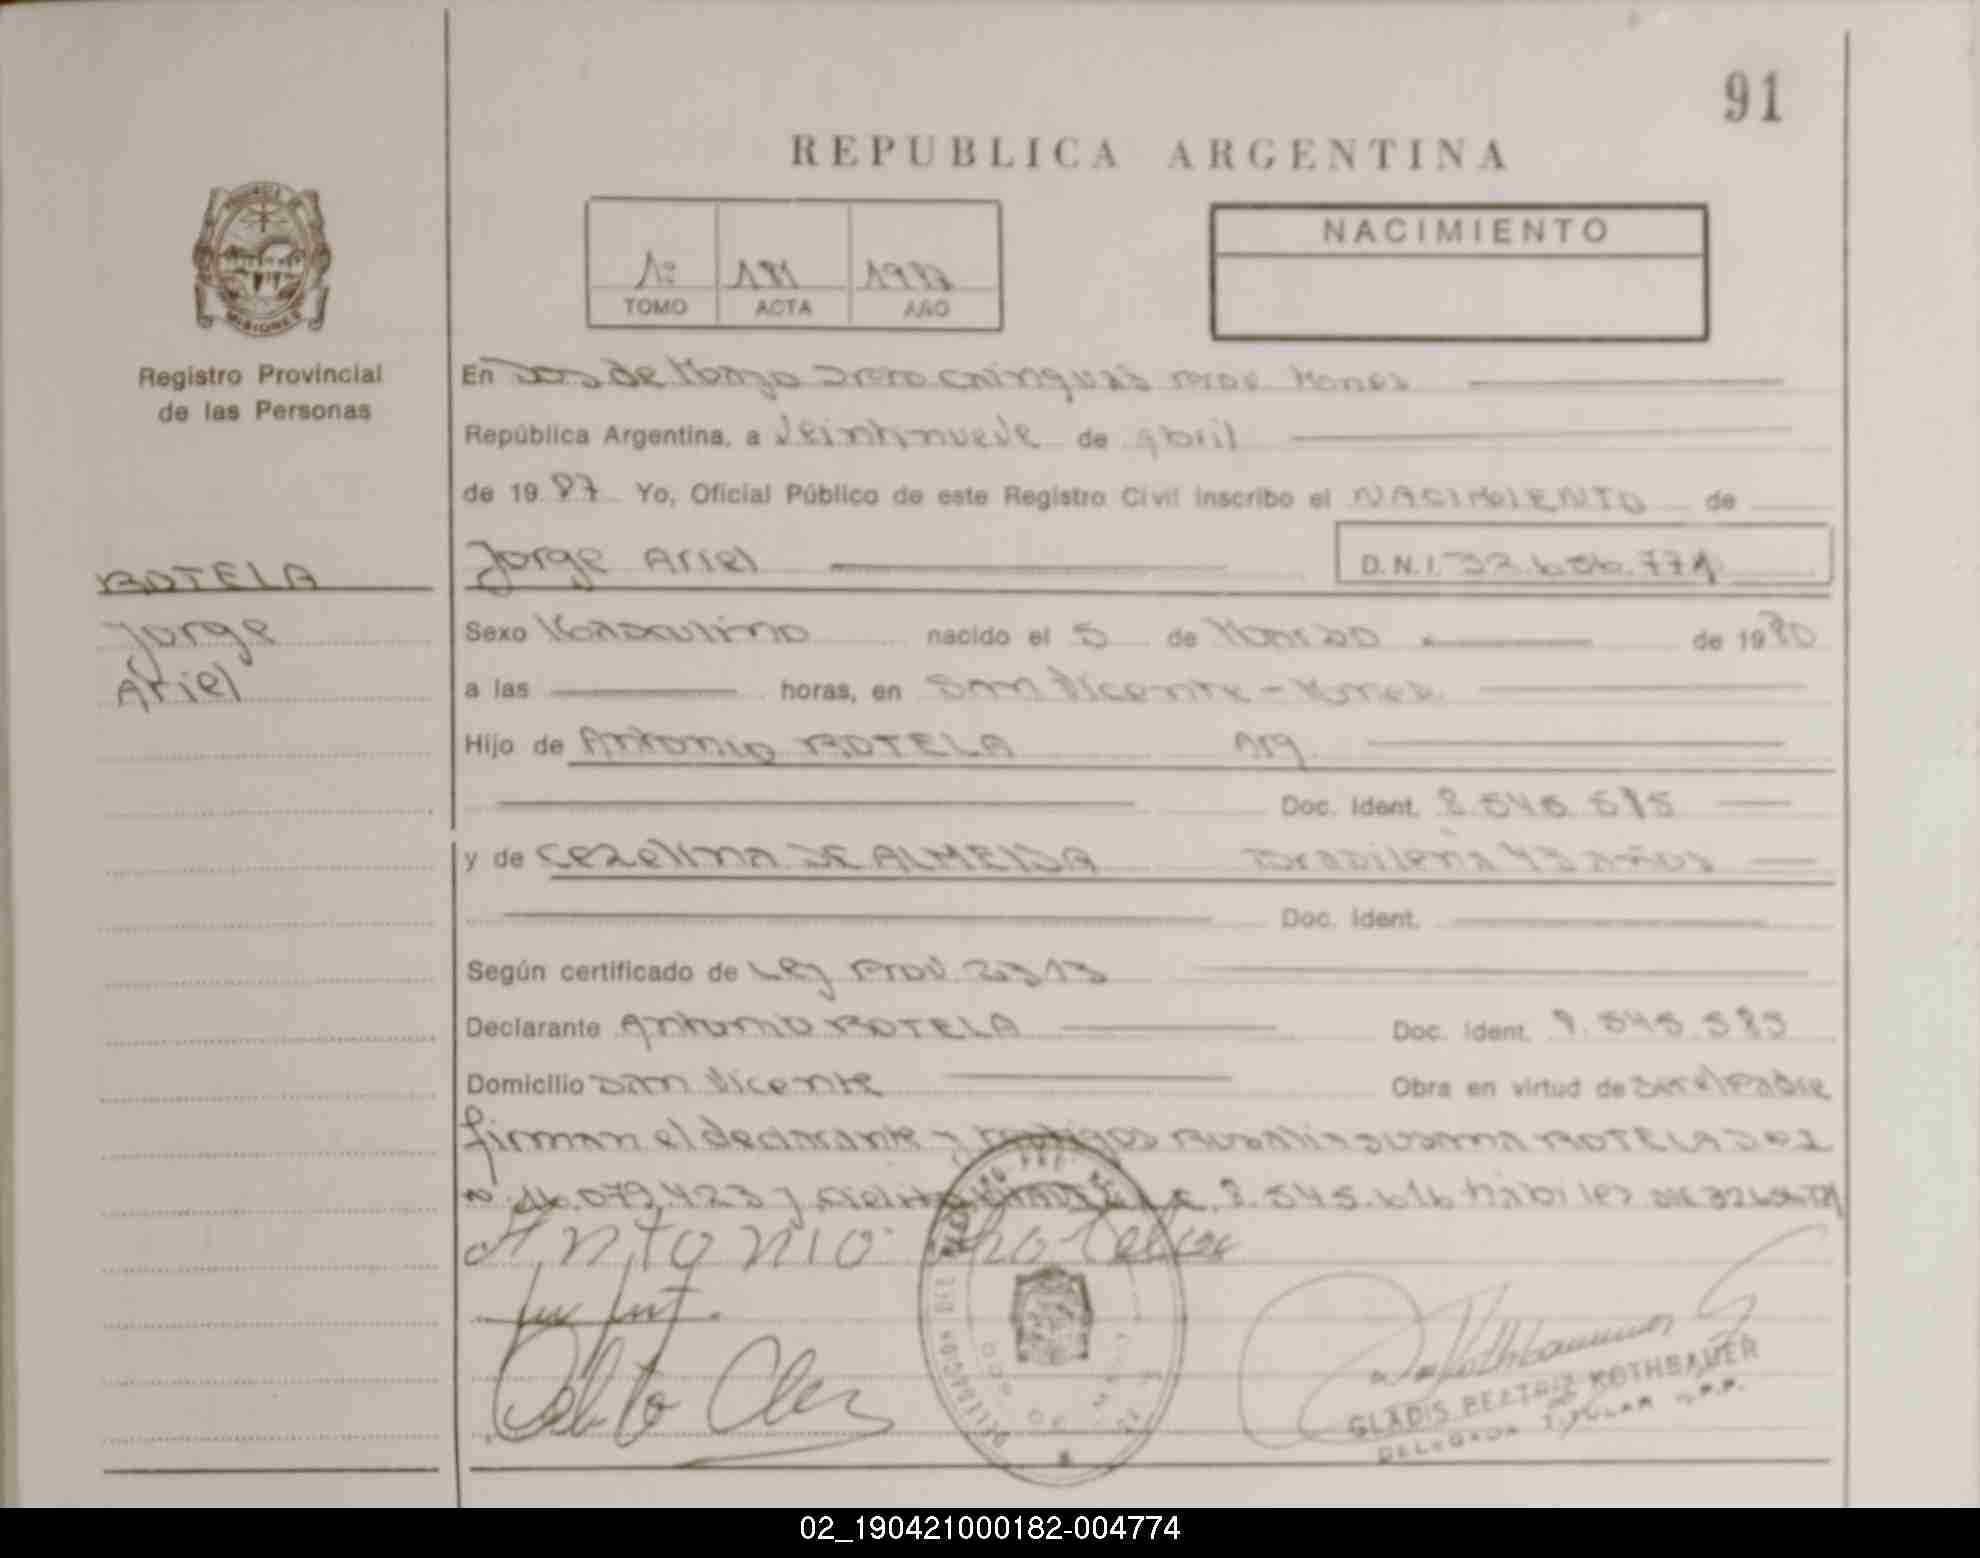 91
REPUBLICA ARGENTINA
1º 181 1987
TOMO ACTA AÑO
NACIMIENTO
MISIONES
Registro Provincial
de las Personas
En Dos de Marzo Dpto Cainguás Prov Mones
República Argentina, a veintinueve de abril
de 1987 Yo, Oficial Público de este Registro Civil inscribo el NACIMIENTO de
ROTELA
Jorge
Ariel
Jorge Ariel D.N.I. 32.656.771
Sexo Masculino nacido el 5 de Marzo de 1980
a las horas, en San Vicente - Mones
Hijo de Antonio ROTELA Arg.
Doc. Ident. 8.545.585
y de Cezelina DE ALMEIDA Brasileña 43 años
Doc. Ident.
Según certificado de Ley Prov. 2313
Declarante Antonio ROTELA Doc. Ident. 8.545.585
Domicilio San Vicente Obra en virtud de Ser el Padre
firman el declarante y testigos ROTELA
8.545.616 hábiles
Antonio Rotela
GLADIS BEATRIZ ROTHBAUER
DELEGADA TITULAR R.P.P.
02_190421000182-004774